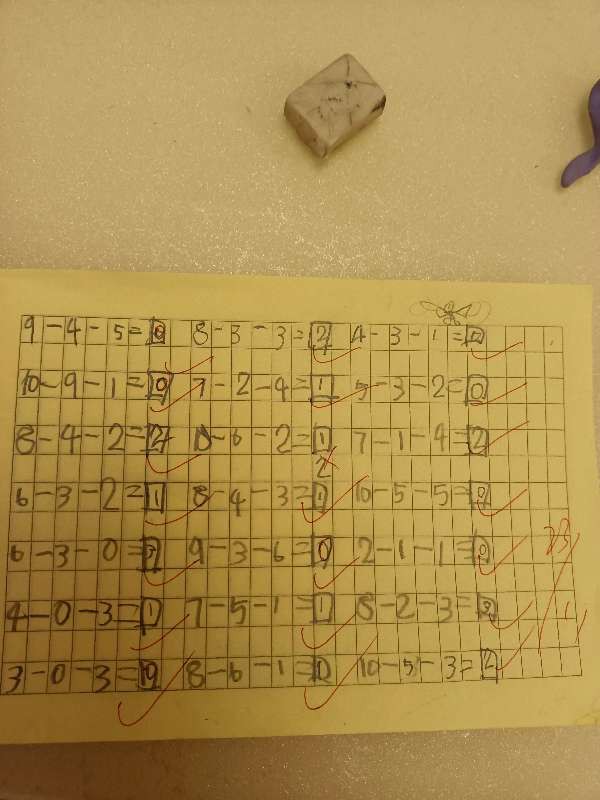 9-4-5=0 8-3-3=2 4-3-1=0
10-9-1=0 7-2-4=1 5-3-2=0
8-4-2=2 10-6-2=1 7-1-4=2
2
6-3-2=1 8-4-3=1 10-5-5=0
6-3-0=3 9-3-6=0 2-1-1=0
4-0-3=1 7-5-1=1 8-2-3=3
3-0-3=0 8-6-1=1 10-5-3=2